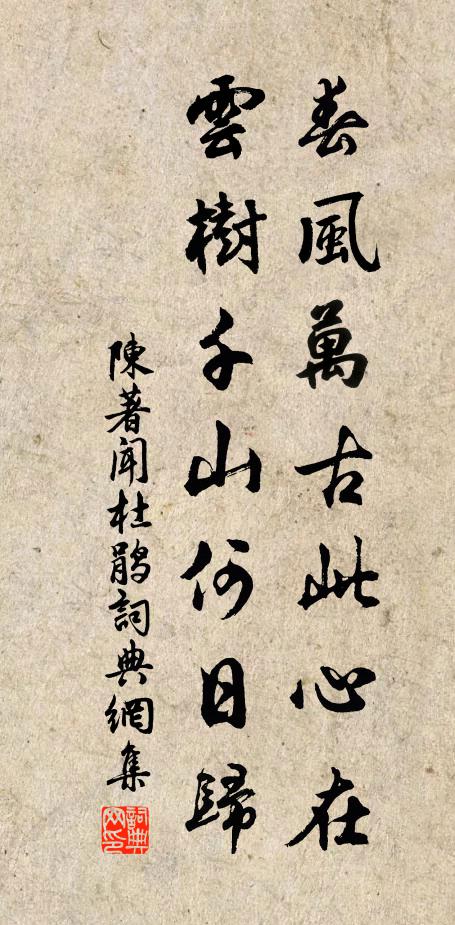 春風萬古此心在
雲樹千山何日歸
陳著闻杜鹃詞典網集
詞典網印